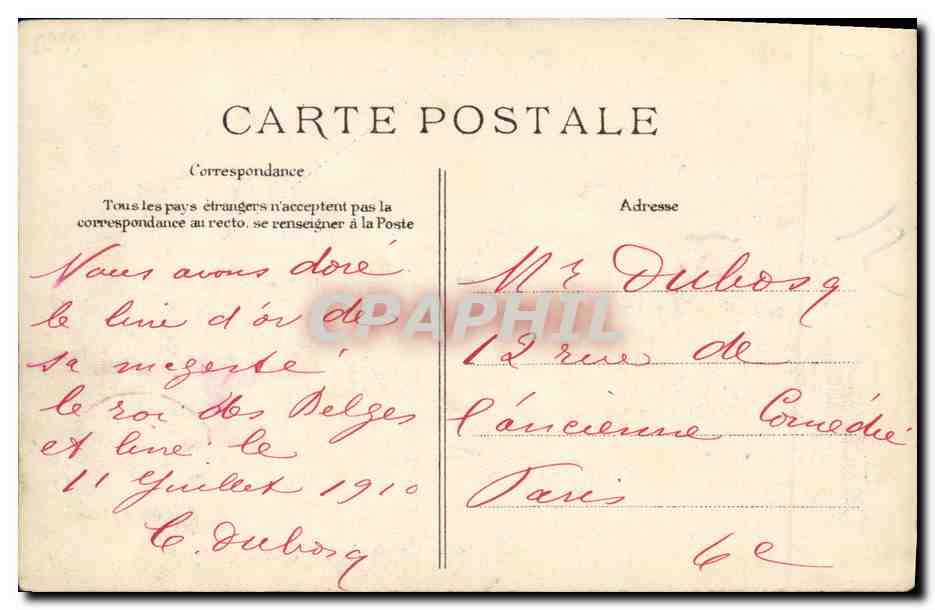 CARTE POSTALE
Correspondance
Tous les pays étrangers n'acceptent pas la
correspondance au recto, se renseigner à la Poste
Nous avons doré
le livre d'or de
sa magesté
le roi des Belges
et livré le
11 Juillet 1910
C. Dubosq
Adresse
Mr Dubosq
12 rue de
l'áncienne Comédie
Paris
6e
CPAPHIL